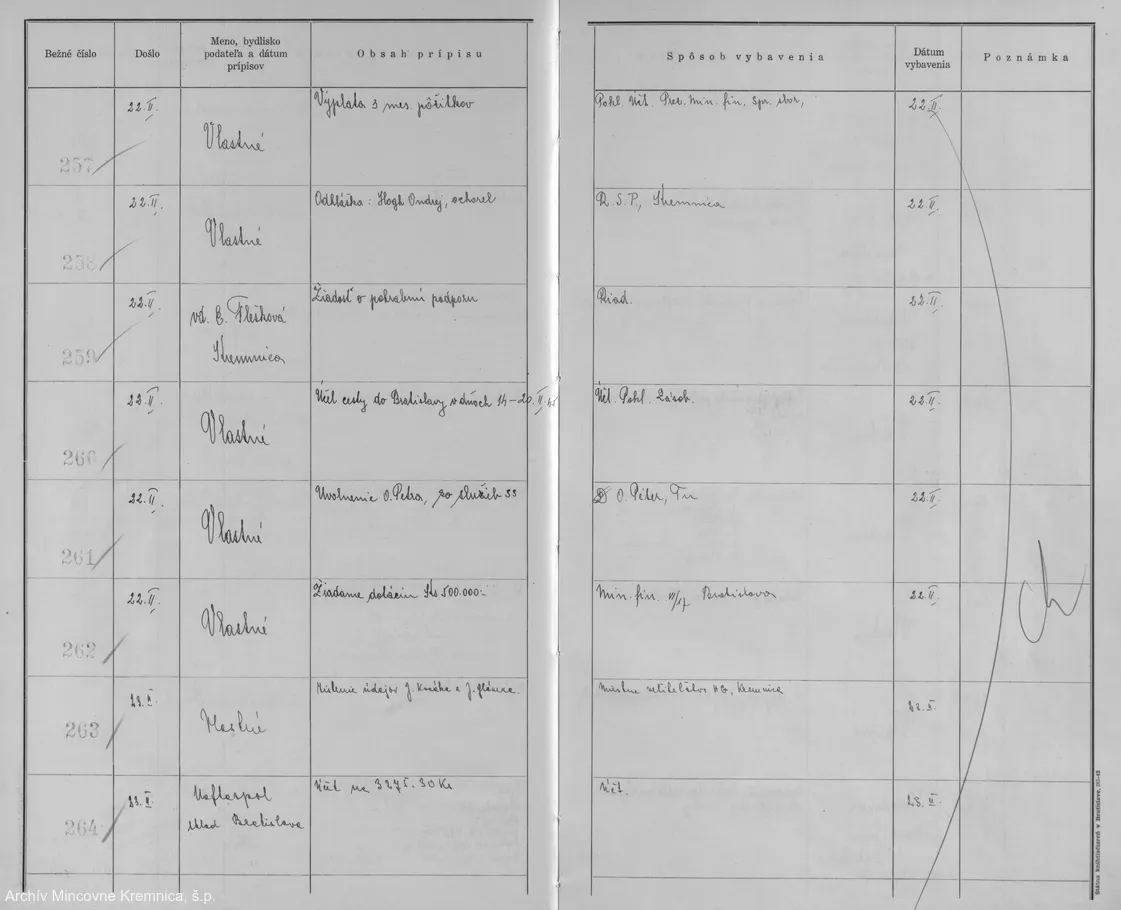 Bežné číslo
Došlo
Meno, bydlisko
podateľa a dátum
prípisov
Obsah prípisu
Spôsob vybavenia
Dátum
vybavenia
Poznámka
257
22.II.
Vlastné
Výplata 3 mes. pôžitkov
Pokl. Účt. Prez. Min. fin. Spr. sbor,
22.II.
258
22.II.
Vlastné
Odhláška: Hogh Ondrej, ochorel
R.S.P., Kremnica
22.II.
259
22.II.
vd. E. Flešková
Kremnica
Žiadosť o pohrabnú podporu
Riad.
22.II.
260
22.II.
Vlastné
Účt cesty do Bratislavy v dňoch 14-20.II.45
Účt. Pokl. Zásob.
22.II.
261
22.II.
Vlastné
Uvolnenie O. Petra, zo služieb SS
O. Péter, Tu
22.II.
262
22.II.
Vlastné
Žiadame dotáciu Ks 500.000.-
Min. fin. Bratislava
22.II.
263
23.II.
Vlastné
údajov J. a J.
HG, Kremnica
23.II.
264
23.II.
Naftaspol
sklad Bratislava
Účt na 3275.30 Ks
Účt.
23.II.
Štátna kníhtlačiareň v Bratislave,
Archív Mincovne Kremnica, š.p.